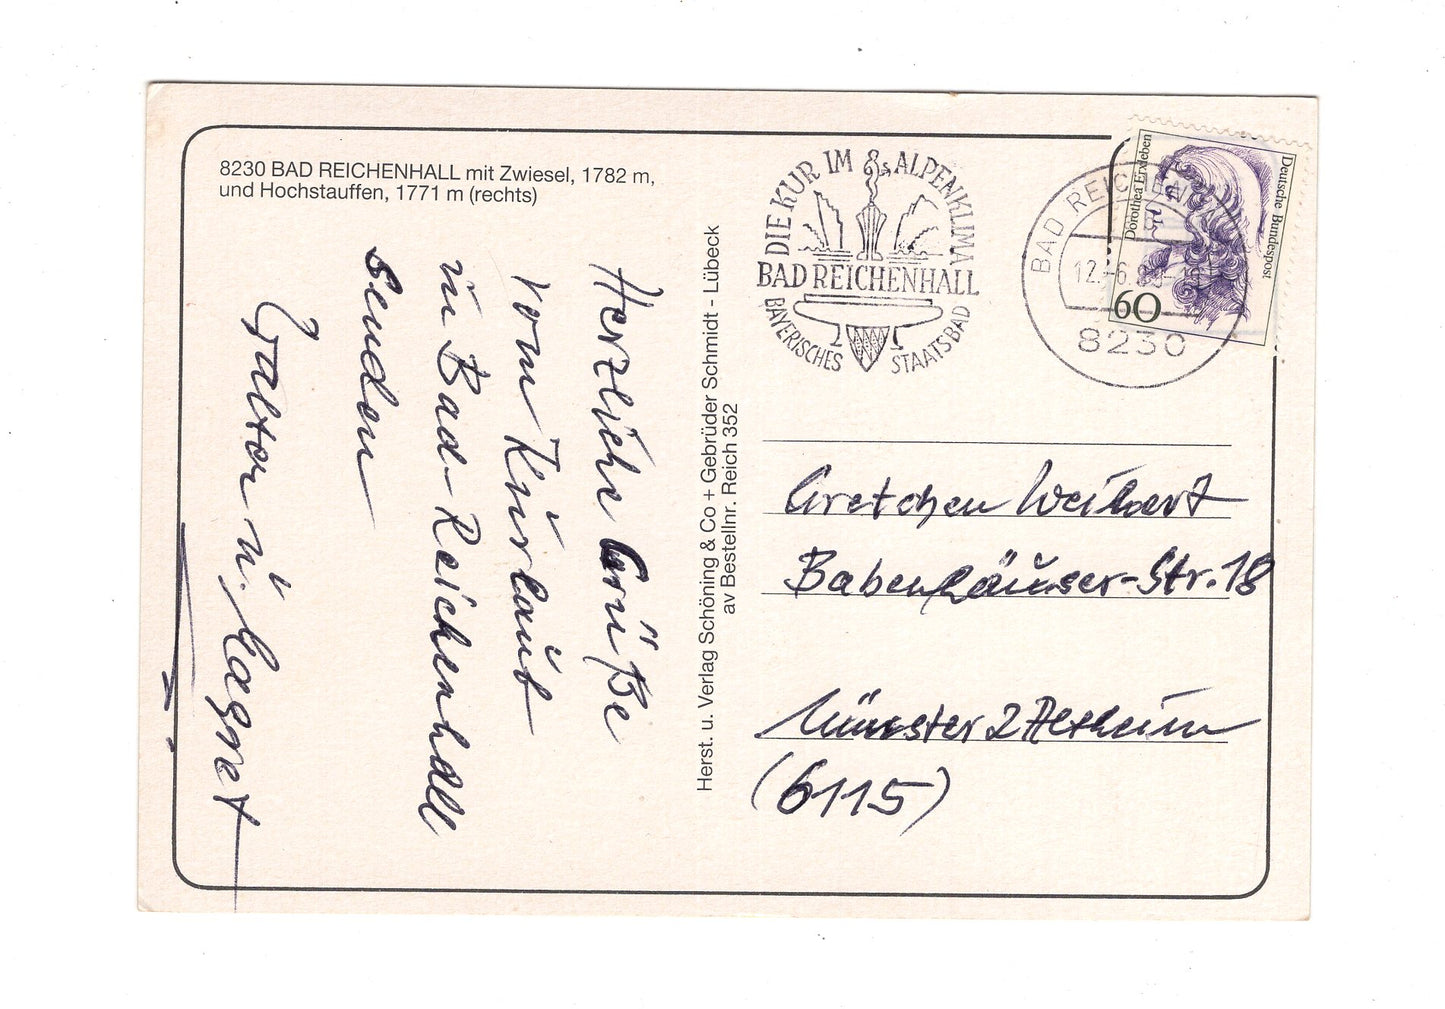 8230 BAD REICHENHALL mit Zwiesel, 1782 m,
und Hochstauffen, 1771 m (rechts)
Herzliche Grüße
vom Kurlaub
in Bad-Reichenhall
senden
u. Magret
Herst. u. Verlag Schöning & Co + Gebrüder Schmidt - Lübeck
av Bestellnr. Reich 352
DIE KUR IM ALPENKLIMA
BAD REICHENHALL
BAYERISCHES STAATSBAD
BAD REICHENHALL
12.-6.
8230
Dorothea Erxleben
Deutsche Bundespost
60
Gretchen Weikart
Babenhäuser-Str. 18
Münster 2 Altheim
(6115)